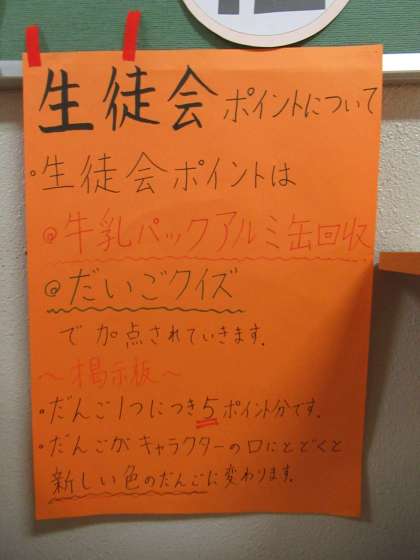 生徒会ポイントについて
・生徒会ポイントは
@牛乳パックアルミ缶回収
@だいごクイズ
で加点されていきます。
～掲示板～
・だんご1つにつき5ポイント分です。
・だんごがキャラクターの口にとどくと
新しい色のだんごに変わります。